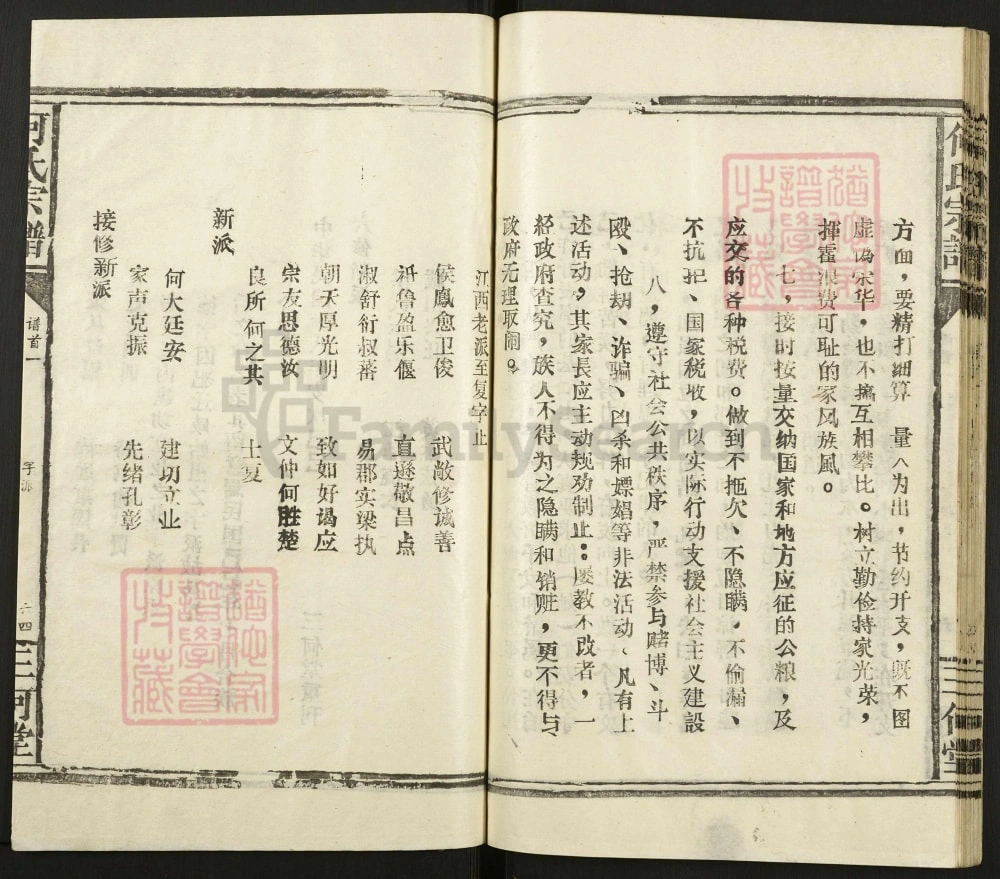 方面，要精打细算 量入为出，节约开支，既不图
虚伪荣华，也不搞互相攀比。树立勤俭持家光荣，
挥霍浪费可耻的家风族風。
七，按时按量交纳国家和地方应征的公粮，及
应交的各种税费。做到不拖欠、不隐瞒、不偷漏、
不抗拒、国家税收，以实际行动支援社会主义建設
八，遵守社会公共秩序，严禁参与赌博、斗
殴、抢劫、诈骗、凶杀和嫖娼等非法活动、凡有上
述活动，其家長应主动规劝制止：屡教不改者，一
经政府查究，族人不得为之隐瞒和销赃，更不得与、
政府无理取闹。
江西老派至复字止
侯鳳愈卫俊 武敞修诚善
祈鲁盈乐偃 直遜敬昌点
淑舒衍叔蕃 易郡实梁执
朝天厚光明 致如好谒应
宗友思德汝 文仲何胜楚
良所何之共 士夏
新派
何大廷安 建切立业
家声克振 先绪孔彰
接修新派
何氏宗譜
谱首一
字派
六四
三何堂
何氏宗譜
三何堂
FamilySearch